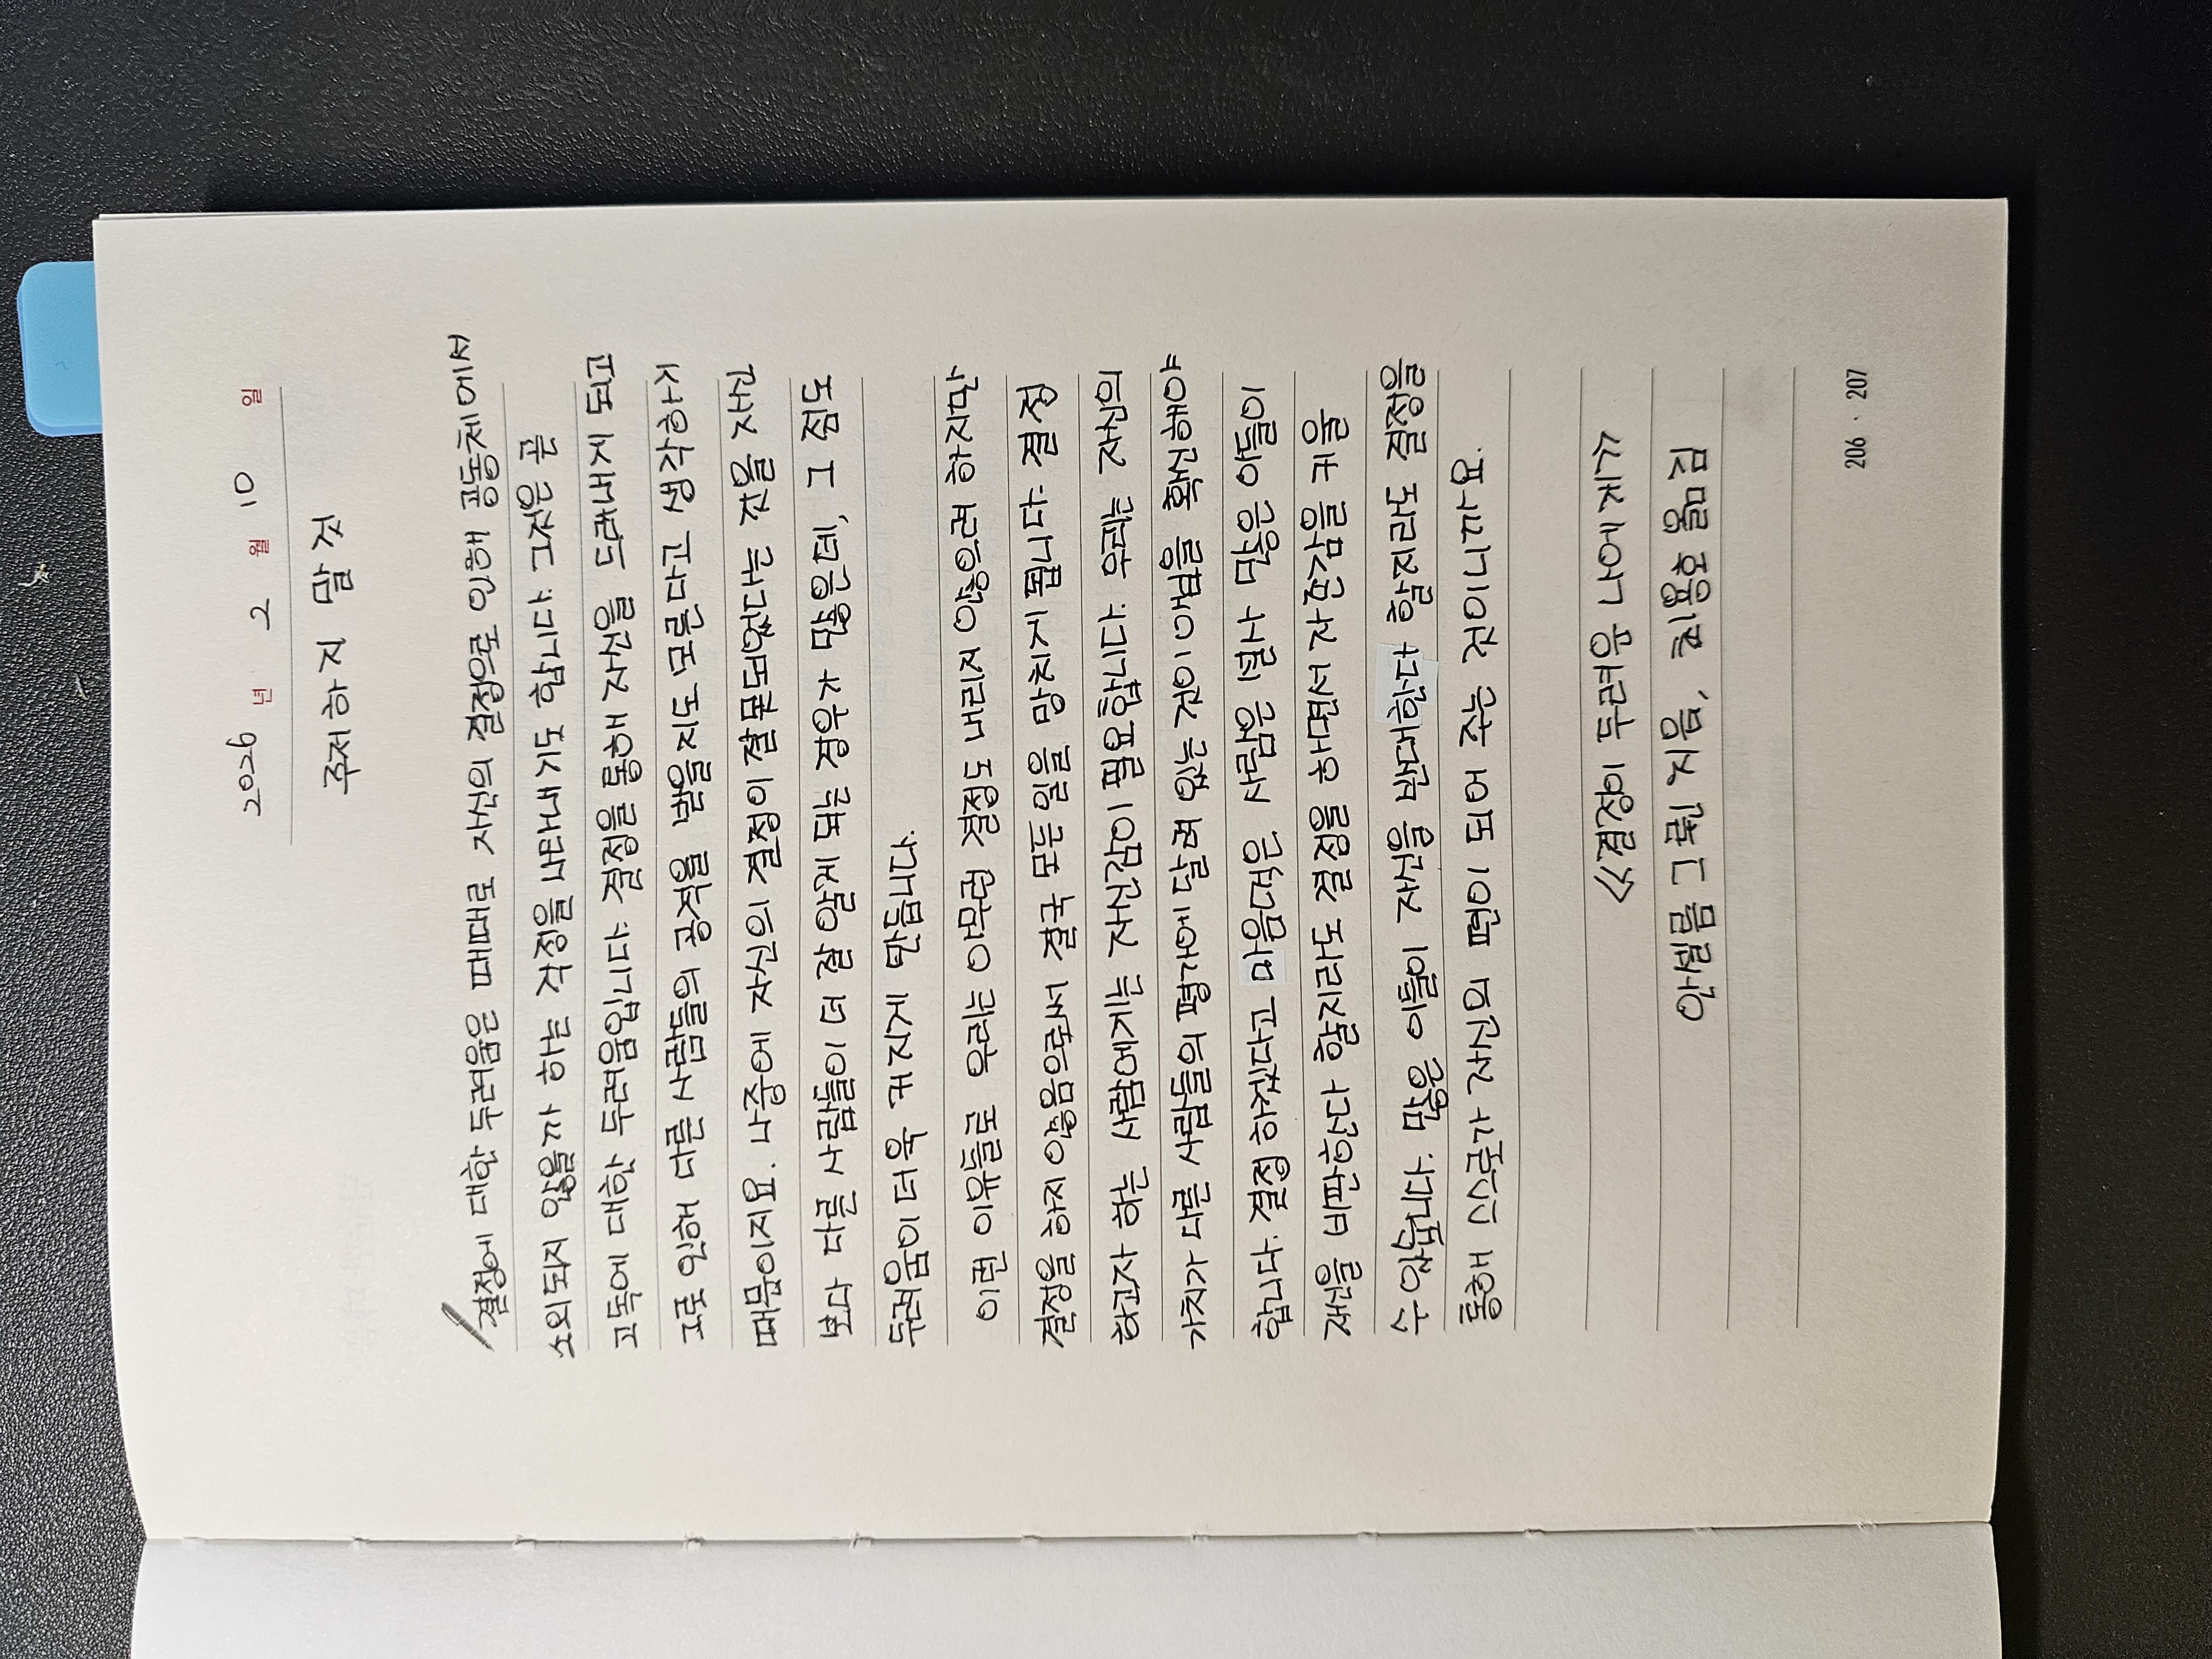 2026 년 2 월 10 일
주저하지 말 것
결정에 대한 두려움은 때때로 자신의 결정으로 인해 공동체에서
소외되지 않을까 하는 걱정을 나타내기도 합니다. 그것은 곧
고독에 대한 두려움입니다. 결정을 통해 자신을 드러내게 되고
그로 인해 다른 사람들의 공격을 받을지도 모른다고 생각하기
때문이지요. 나중에 자신의 결정이 잘못되었다는 것을 자신
보다 다른 사람들이 더 잘 알게 되는 경우가 많은데, 그 점도
두려움이 더욱 커지게 만듭니다.
이런 이유들로 우리는 아무런 결정도 내리지 않으려 하지만
결정을 하지 않음으로써 결국 모든 일을 망치게 됩니다. 결정
하고자 하는 사람에게는 자신감이 필요합니다. 우리는 자신의
가치가 다른 사람들의 평가에 달려 있는 것이 아님을 확신해야
합니다. 결정하겠다고 마음먹은 사람은 비록 많은 이들이
자신을 비판한다 할지라도 결정을 하면서 자존감을 키울
수 있습니다. 많은 이들이 자신을 반대한다 할지라도 결정을
통해 스스로가 자신의 편이 되어 주는 것이니까요.
《결정이 두려운 나에게》
안셀름 그륀 지음, 최용호 옮김
206 · 207